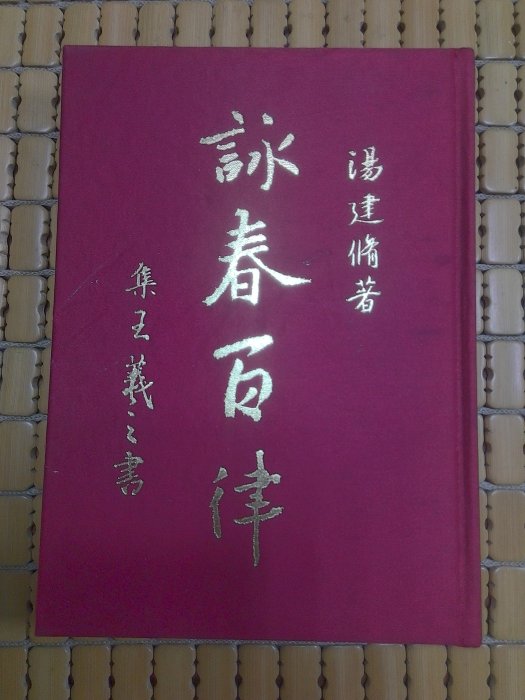 湯建脩著
詠春百律
集王羲之書